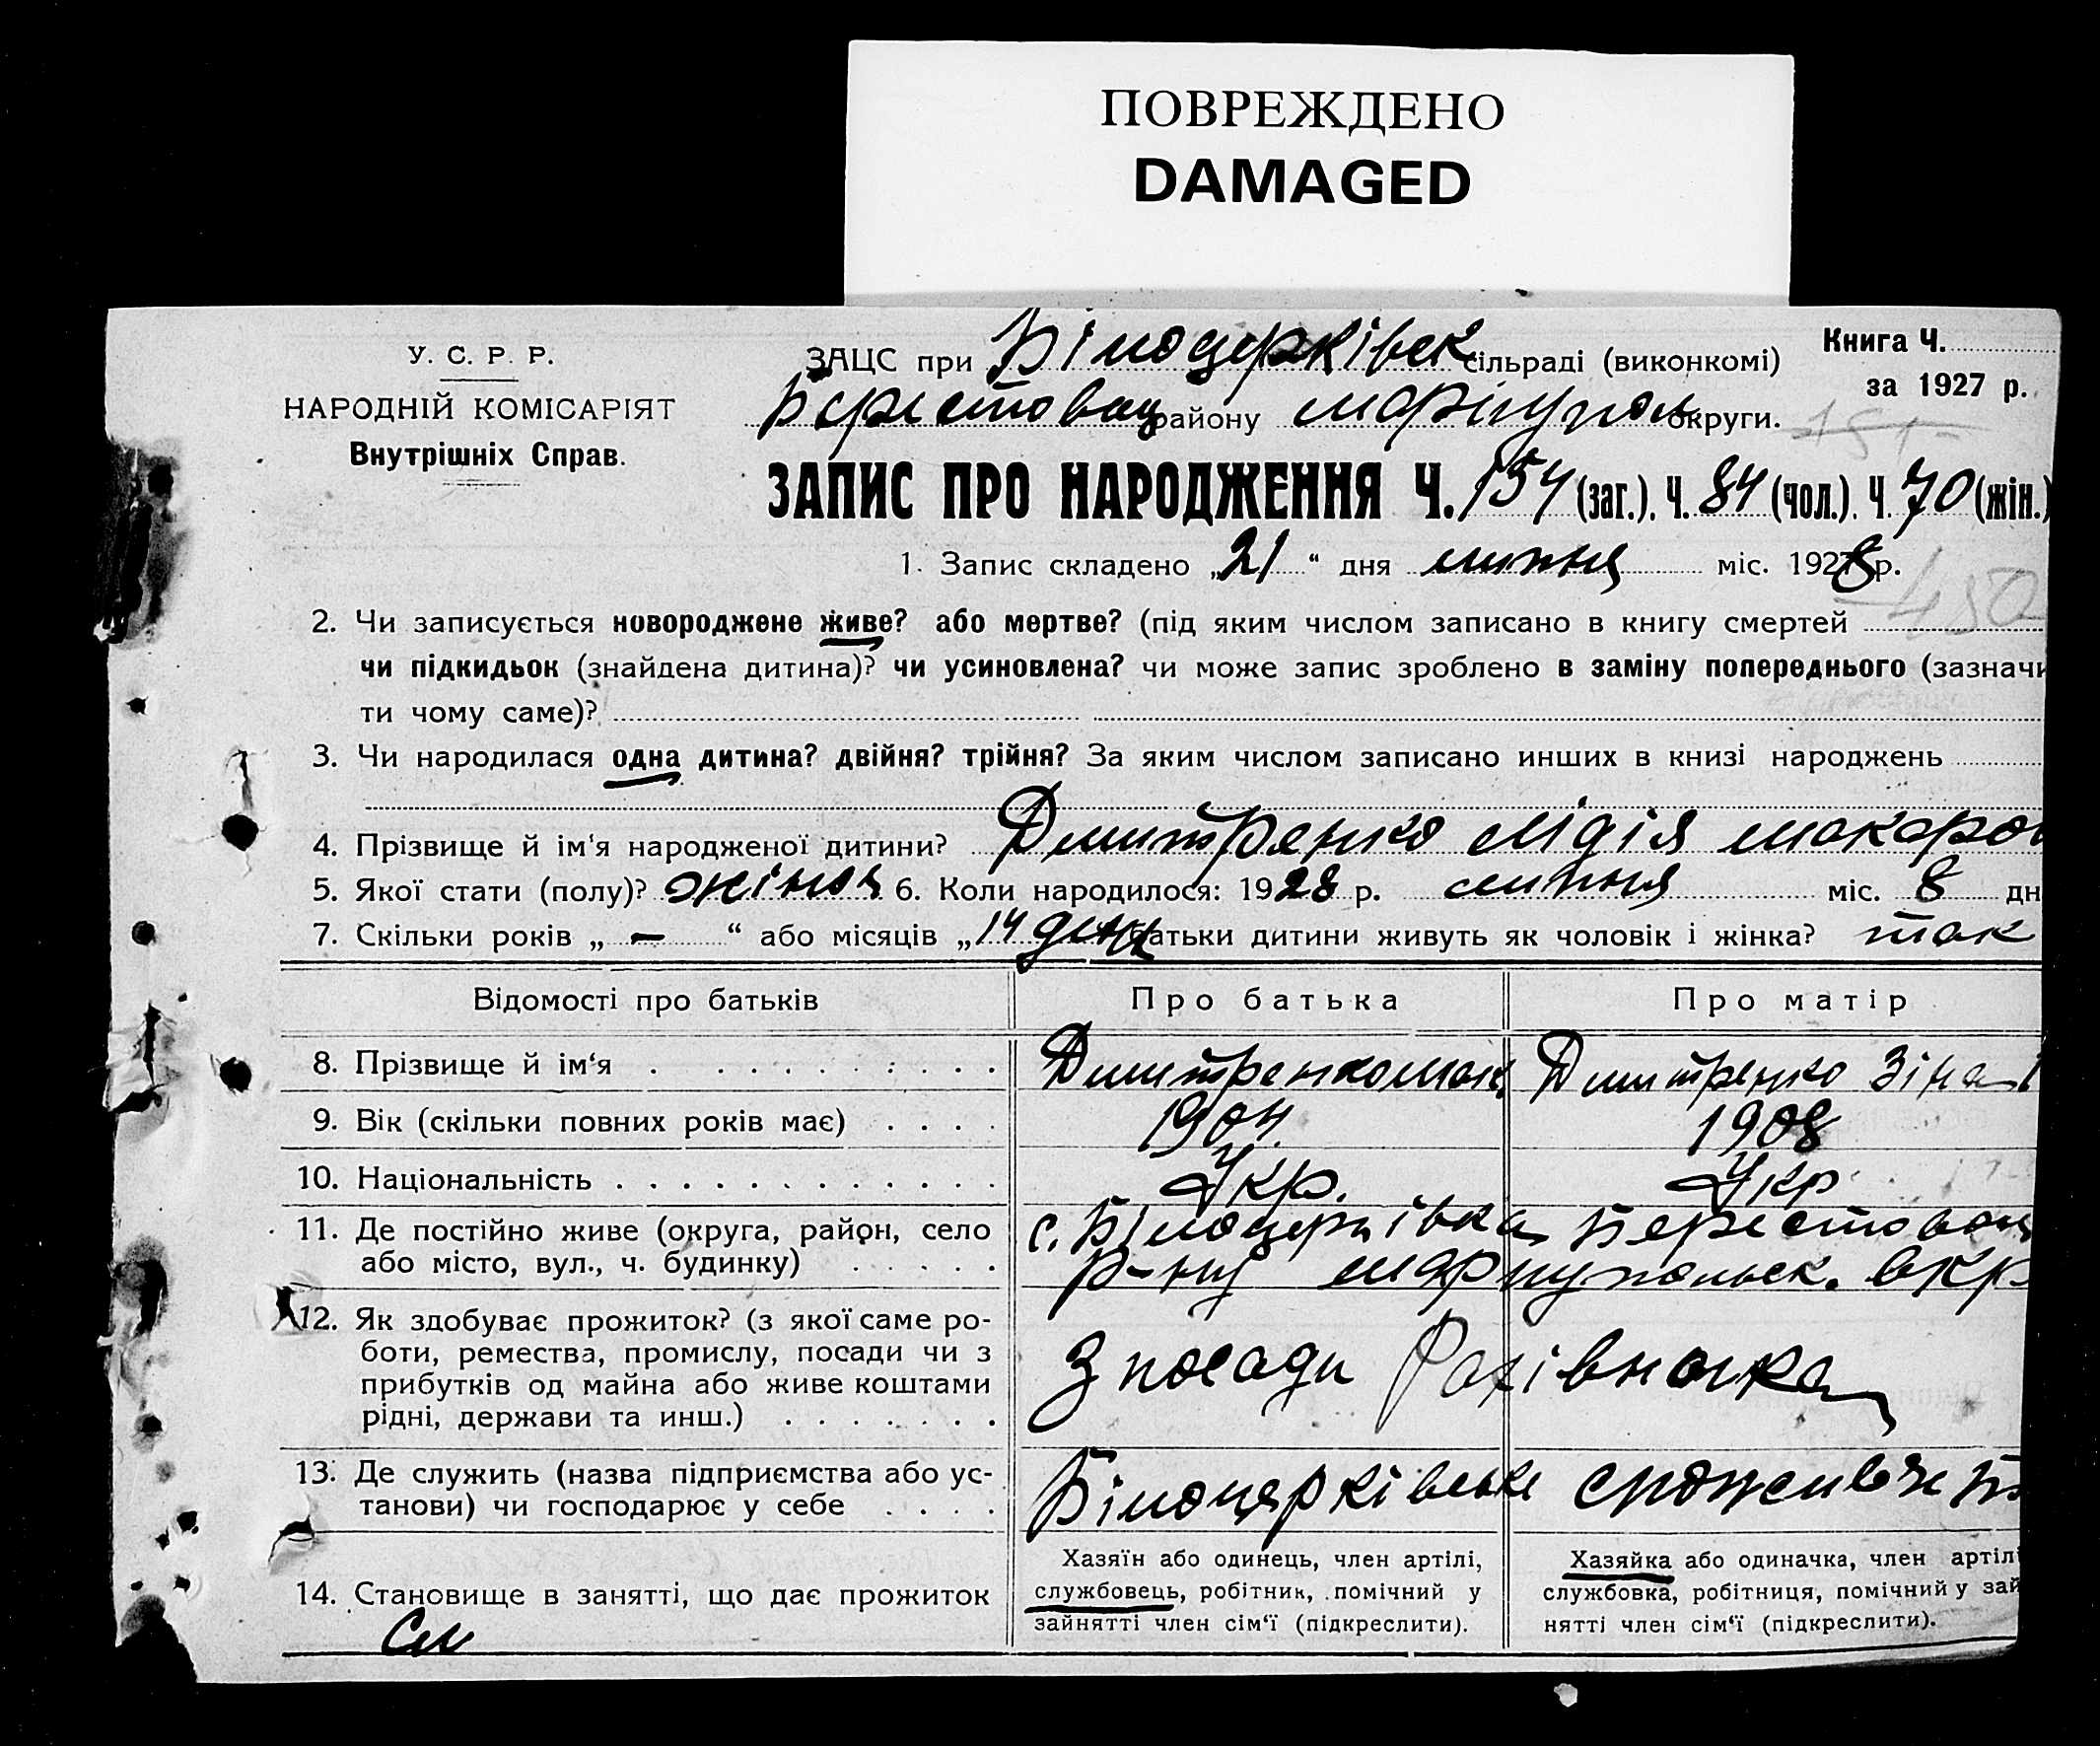 ПОВРЕЖДЕНО
DAMAGED
У. С. Р. Р.
НАРОДНІЙ КОМІСАРІЯТ
Внутрішніх Справ.
ЗАЦС при Білоцерківск сільраді (виконкомі)
Берестовец району Маріупол округи.
Книга Ч.
за 1927 р.
ЗАПИС ПРО НАРОДЖЕННЯ Ч. 154 (заг.). Ч. 84 (чол.). Ч. 70 (жін.)
1. Запис складено „21“ дня липня міс. 1928 р.
450
2. Чи записується новороджене живе? або мертве? (під яким числом записано в книгу смертей
чи підкидьок (знайдена дитина)? чи усиновлена? чи може запис зроблено в заміну попереднього (зазначи
ти чому саме)?
3. Чи народилася одна дитина? двійня? трійня? За яким числом записано инших в книзі народжень
4. Прізвище й ім'я народженої дитини? Дмитренко Лідія Макаров
5. Якої стати (полу)? жіноч 6. Коли народилося: 1928 р. липня міс. 8 дн
7. Скільки років „ — “ або місяців „14 день батьки дитини живуть як чоловік і жінка? так
Відомості про батьків Про батька Про матір
8. Прізвище й ім'я Дмитренко Мак Дмитренко Зінаї
9. Вік (скільки повних років має) 1904 1908
10. Національність Укр. Укр
11. Де постійно живе (округа, район, село
або місто, вул., ч. будинку)
с. Білоцерківка Берестовец
р-ну Маріупольск. окр
12. Як здобуває прожиток? (з якої саме ро-
боти, ремества, промислу, посади чи з
прибутків од майна або живе коштами
рідні, держави та инш.)
З посади Рахівника
13. Де служить (назва підприємства або ус-
танови) чи господарює у себе
Білоцерківське
14. Становище в занятті, що дає прожиток
Хазяїн або одинець, член артілі,
службовець, робітник, помічний у
зайнятті член сім'ї (підкреслити).
Хазяйка або одиначка, член артіл
службовка, робітниця, помічний у зай
нятті член сім'ї (підкреслити).